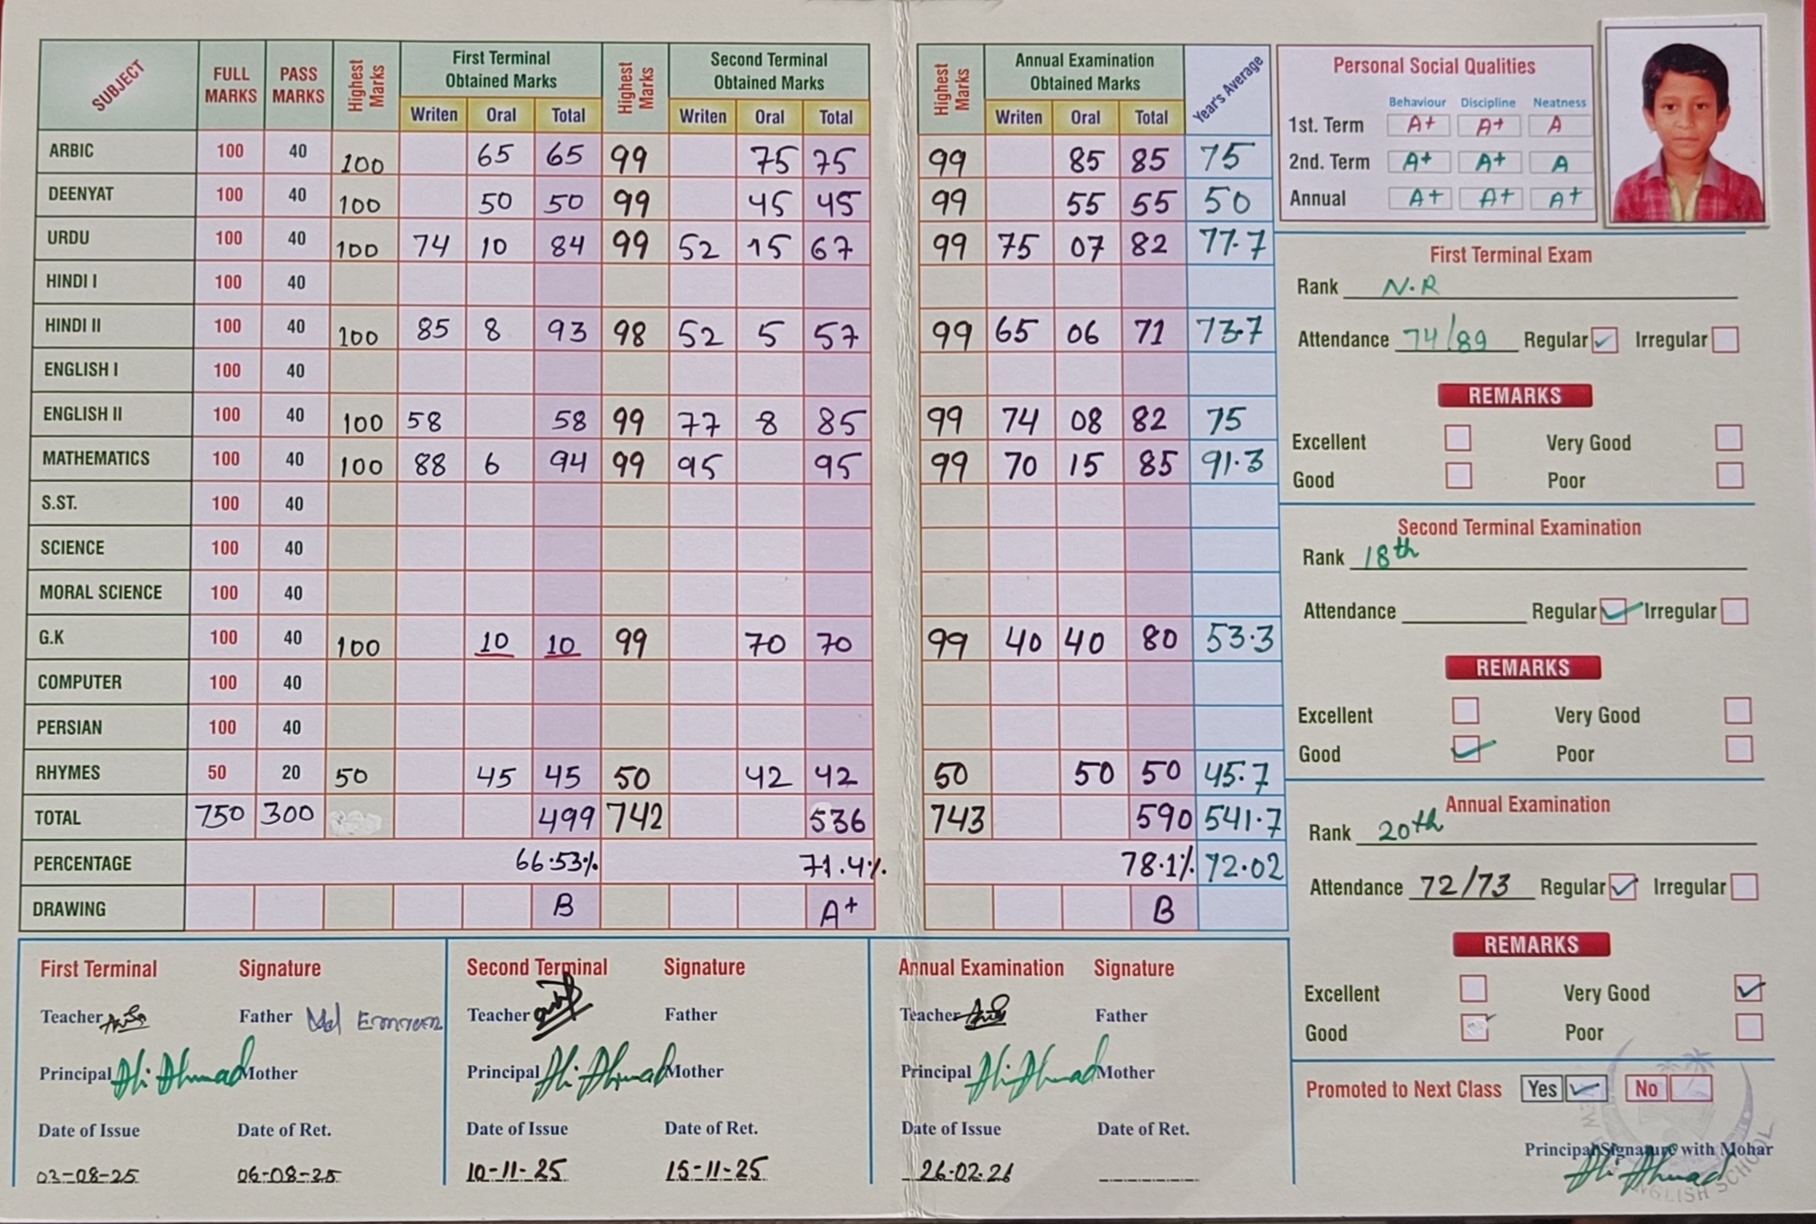 SUBJECT FULL MARKS PASS MARKS Highest Marks First Terminal Obtained Marks Highest Marks Second Terminal Obtained Marks
Writen Oral Total Writen Oral Total
ARBIC 100 40 100 65 65 99 75 75
DEENYAT 100 40 100 50 50 99 45 45
URDU 100 40 100 74 10 84 99 52 15 67
HINDI I 100 40
HINDI II 100 40 100 85 8 93 98 52 5 57
ENGLISH I 100 40
ENGLISH II 100 40 100 58 58 99 77 8 85
MATHEMATICS 100 40 100 88 6 94 99 95 95
S.ST. 100 40
SCIENCE 100 40
MORAL SCIENCE 100 40
G.K 100 40 100 10 10 99 70 70
COMPUTER 100 40
PERSIAN 100 40
RHYMES 50 20 50 45 45 50 42 42
TOTAL 750 300 499 742 536
PERCENTAGE 66.53% 71.4%
DRAWING B A+
First Terminal Signature
Teacher Father Md Emroan
Principal Ali Ahmad Mother
Date of Issue Date of Ret.
03-08-25 06-08-25
Second Terminal Signature
Teacher Father
Principal Ali Ahmad Mother
Date of Issue Date of Ret.
10-11-25 15-11-25
Highest Marks Annual Examination Obtained Marks Year's Average
Writen Oral Total
99 85 85 75
99 55 55 50
99 75 07 82 77.7
99 65 06 71 73.7
99 74 08 82 75
99 70 15 85 91.3
99 40 40 80 53.3
50 50 50 45.7
743 590 541.7
78.1% 72.02
B
Annual Examination Signature
Teacher Father
Principal Ali Ahmad Mother
Date of Issue Date of Ret.
26.02.26
Personal Social Qualities
Behaviour Discipline Neatness
1st. Term A+ A+ A
2nd. Term A+ A+ A
Annual A+ A+ A+
First Terminal Exam
Rank N.R
Attendance 74/89 Regular Irregular
REMARKS
Excellent Very Good
Good Poor
Second Terminal Examination
Rank 18th
Attendance Regular Irregular
REMARKS
Excellent Very Good
Good Poor
Annual Examination
Rank 20th
Attendance 72/73 Regular Irregular
REMARKS
Excellent Very Good
Good Poor
Promoted to Next Class Yes No
Principal Signature with Mohar
Ali Ahmad
ENGLISH SCHOOL